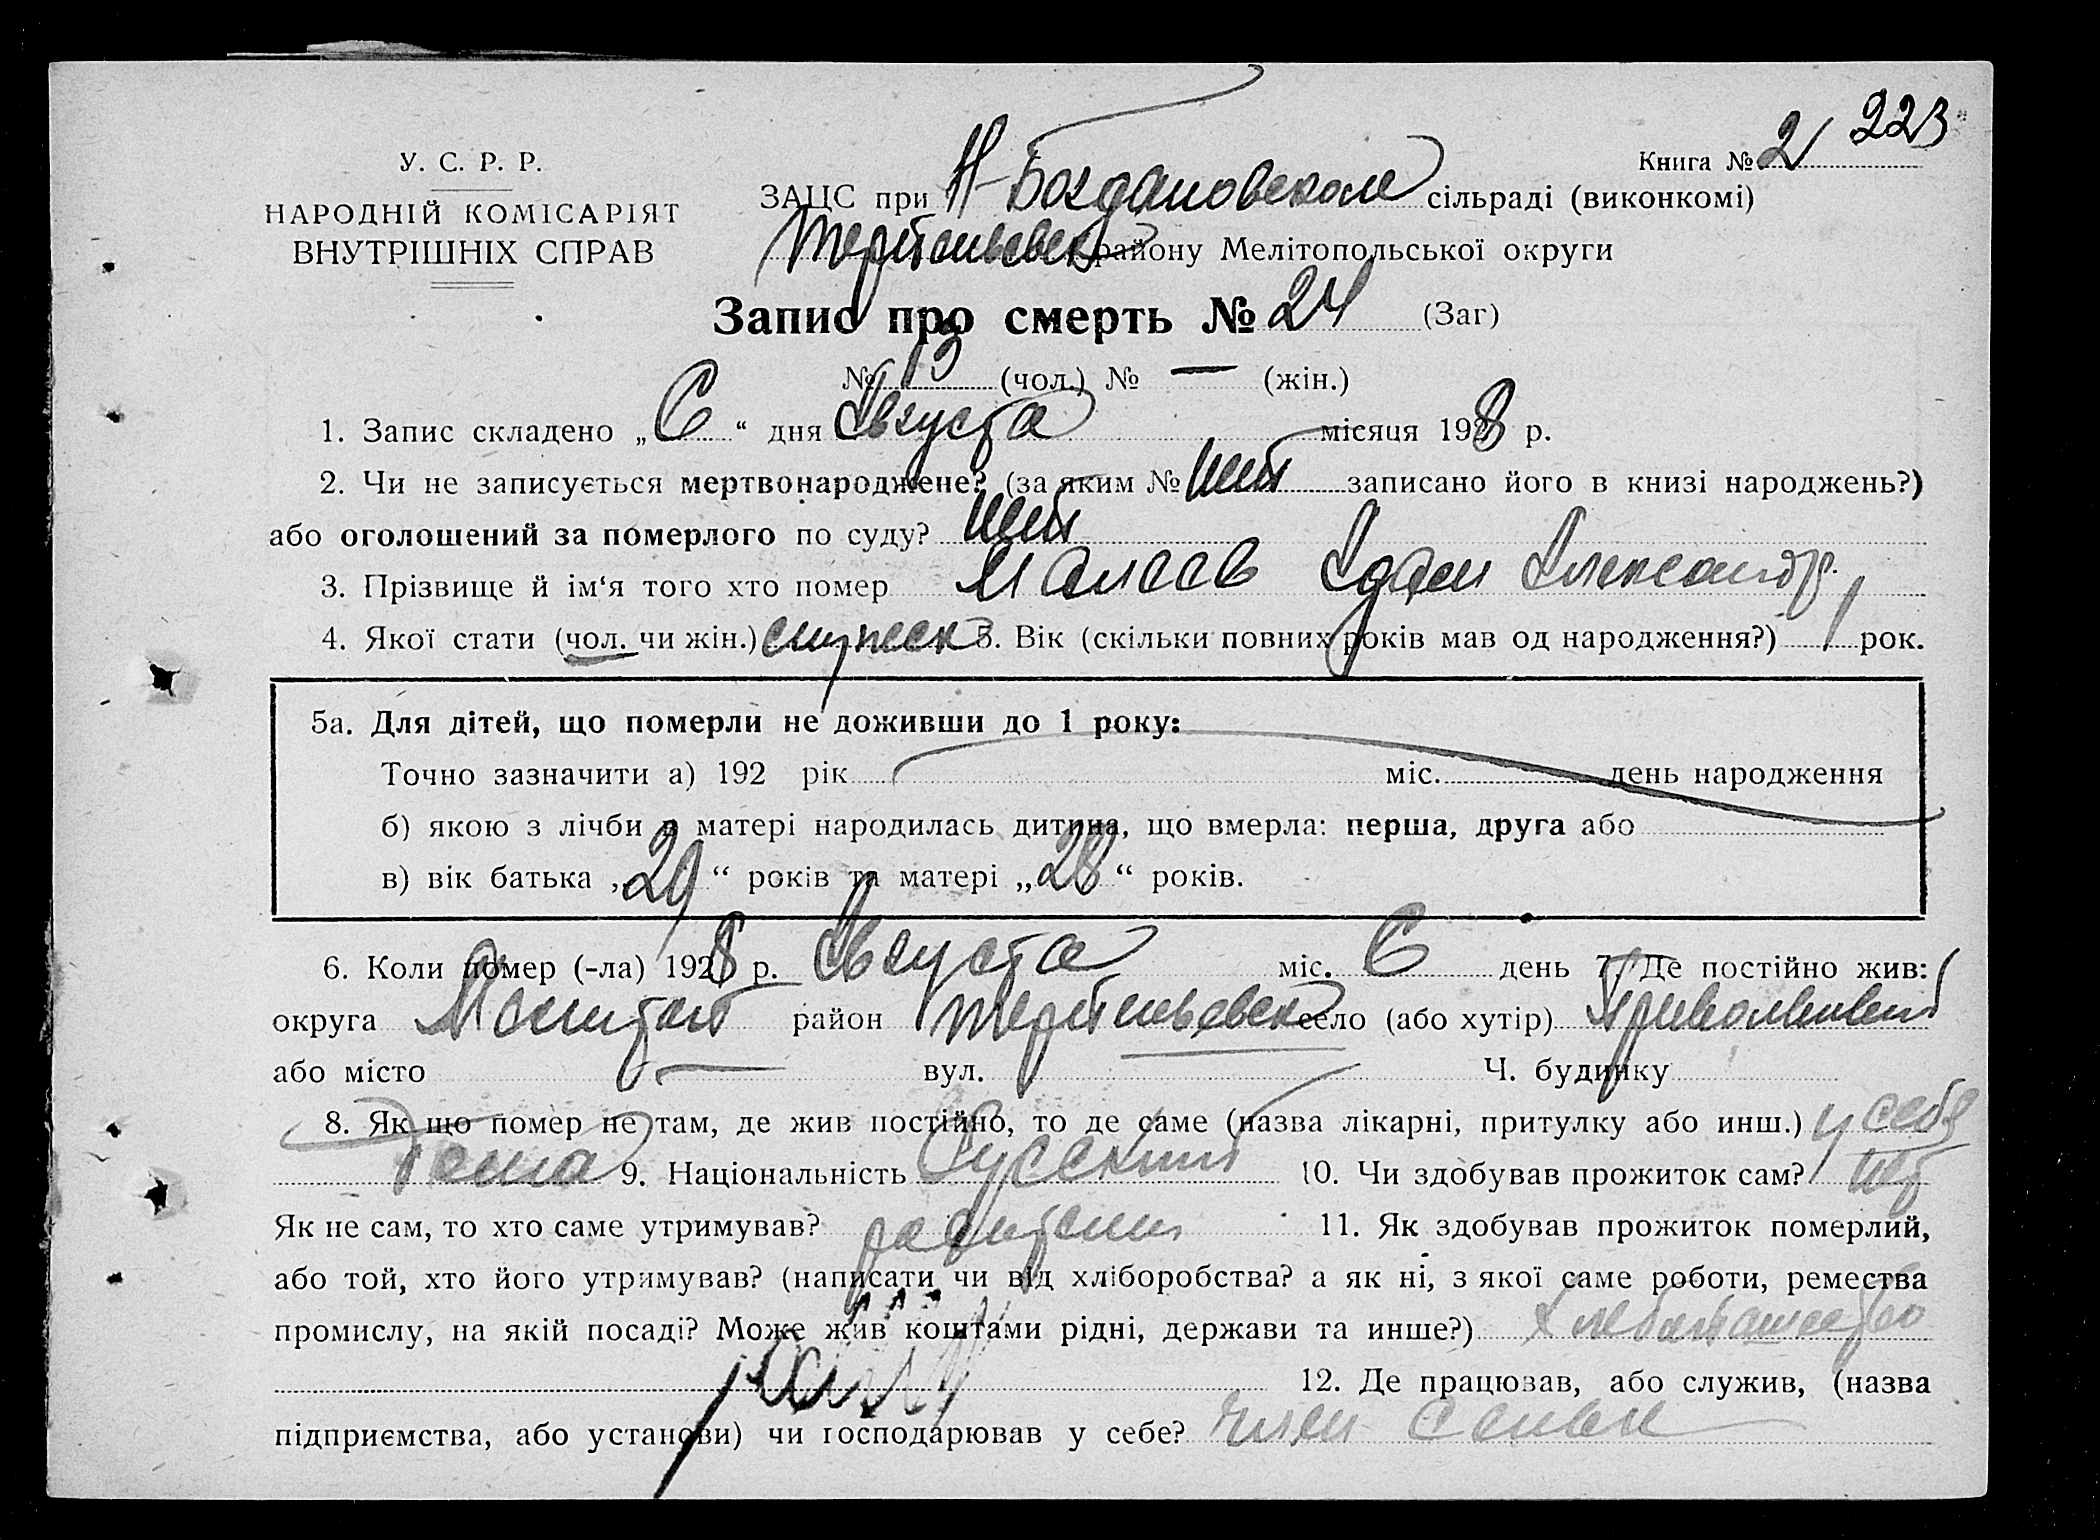 223
У. С. Р. Р.
НАРОДНІЙ КОМІСАРІЯТ
ВНУТРІШНІХ СПРАВ
Книга № 2
ЗАЦС при Н-Богдановском сільраді (виконкомі)
району Мелітопольської округи
Запис про смерть № 24 (Заг)
№ 13 (чол.) № — (жін.)
1. Запис складено „6“ дня Августа місяця 1928 р.
2. Чи не записується мертвонароджене? (за яким № нет записано його в книзі народжень?)
або оголошений за померлого по суду? нет
3. Прізвище й ім‘я того хто помер Малеев Адам Александр.
4. Якої стати (чол. чи жін.) мужеск 5. Вік (скільки повних років мав од народження?) 1 рок.
5а. Для дітей, що померли не доживши до 1 року:
Точно зазначити а) 192 рік міс. день народження
б) якою з лічби у матері народилась дитина, що вмерла: перша, друга або
в) вік батька „29“ років та матері „28“ років.
6. Коли помер (-ла) 1928 р. Августа міс. 6 день 7. Де постійно жив:
округа Мелитоп район село (або хутір)
або місто — вул. Ч. будинку
8. Як що помер не там, де жив постійно, то де саме (назва лікарні, притулку або инш.) у себя
дома 9. Національність Русский 10. Чи здобував прожиток сам? нет
Як не сам, то хто саме утримував? родители 11. Як здобував прожиток померлий,
або той, хто його утримував? (написати чи від хліборобства? а як ні, з якої саме роботи, ремества
промислу, на якій посаді? Може жив коштами рідні, держави та инше?) Хлебопашество
12. Де працював, або служив, (назва
підприємства, або установи) чи господарював у себе? член семьи